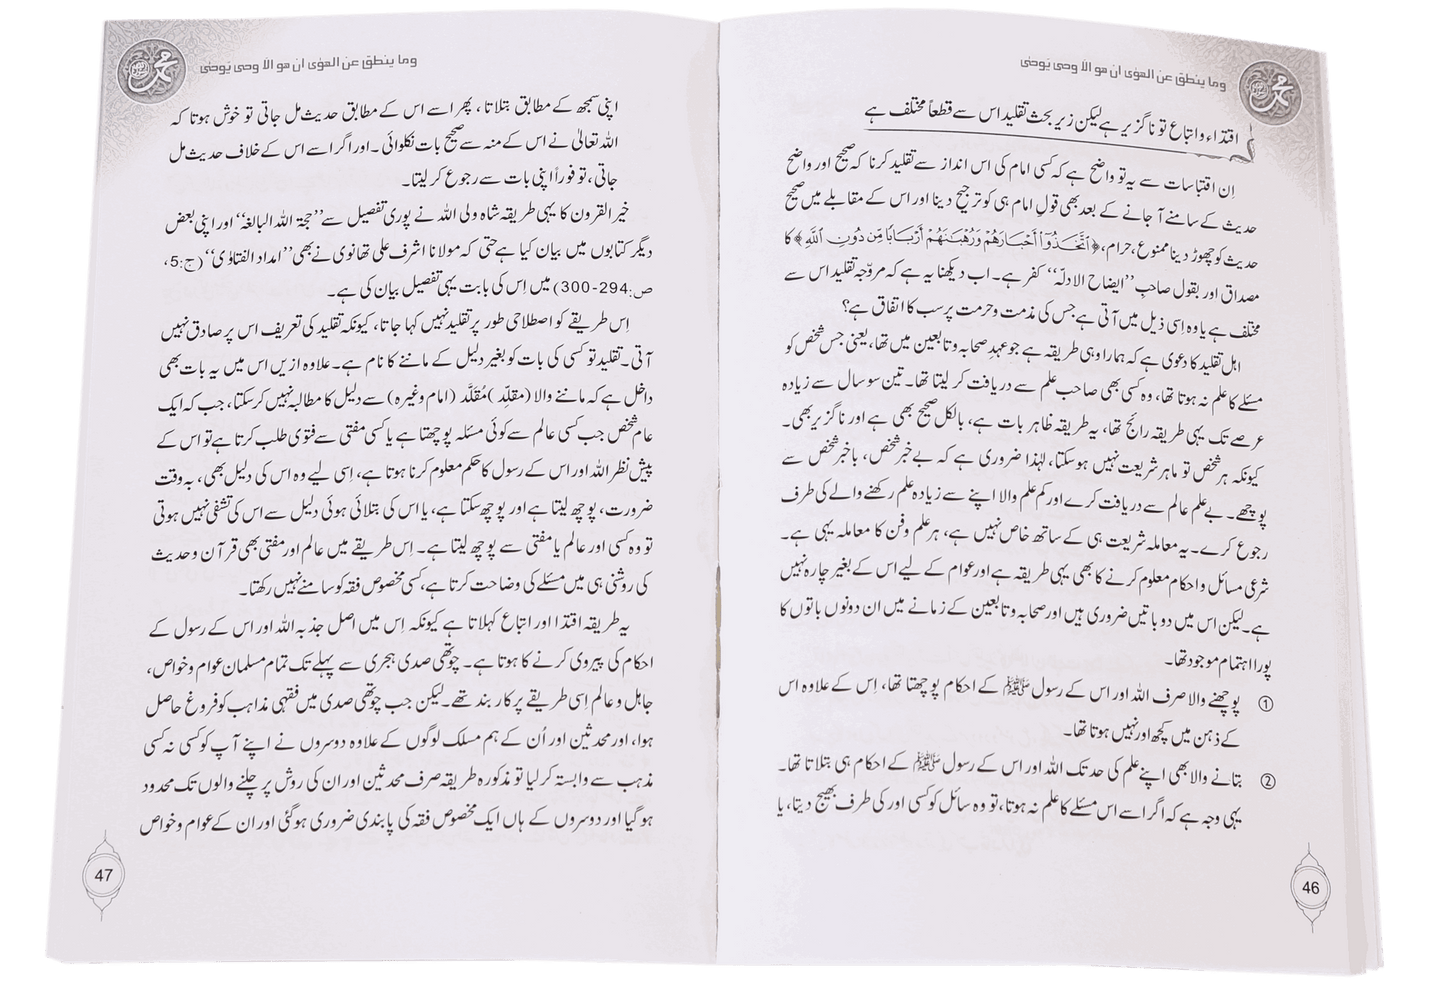 وما ینطق عن الھوٰی ان ھو الا وحی یوحیٰ
اقتداء و اتباع تو ناگزیر ہے لیکن زیر بحث تقلید اس سے قطعاً مختلف ہے
اِن اقتباسات سے یہ تو واضح ہے کہ کسی امام کی اس انداز سے تقلید کرنا کہ صحیح اور واضح
حدیث کے سامنے آ جانے کے بعد بھی قولِ امام ہی کو ترجیح دینا اور اس کے مقابلے میں صحیح
حدیث کو چھوڑ دینا ممنوع، حرام، ﴿اِتَّخَذُوْٓا اَحْبَارَهُمْ وَرُهْبَانَهُمْ اَرْبَابًا مِّنْ دُوْنِ اللّٰهِ﴾ کا
مصداق اور بقول صاحبِ ’’ایضاح الادلہ‘‘ کفر ہے۔ اب دیکھنا یہ ہے کہ مروّجہ تقلید اس سے
مختلف ہے یا وہ اِسی ذیل میں آتی ہے جس کی مذمت و حرمت پر سب کا اتفاق ہے؟
اہل تقلید کا دعویٰ ہے کہ ہمارا وہی طریقہ ہے جو عہدِ صحابہ و تابعین میں تھا، یعنی جس شخص کو
مسئلے کا علم نہ ہوتا تھا، وہ کسی بھی صاحب علم سے دریافت کر لیتا تھا۔ تین سو سال سے زیادہ
عرصے تک یہی طریقہ رائج تھا، یہ طریقہ ظاہر بات ہے، بالکل صحیح بھی ہے اور ناگزیر بھی۔
کیونکہ ہر شخص تو ماہر شریعت نہیں ہو سکتا، لہٰذا ضروری ہے کہ بے خبر شخص، باخبر شخص سے
پوچھے۔ بے علم عالم سے دریافت کرے اور کم علم والا اپنے سے زیادہ علم رکھنے والے کی طرف
رجوع کرے۔ یہ معاملہ شریعت ہی کے ساتھ خاص نہیں ہے، ہر علم و فن کا معاملہ یہی ہے۔
شرعی مسائل و احکام معلوم کرنے کا بھی یہی طریقہ ہے اور عوام کے لیے اس کے بغیر چارہ نہیں
ہے۔ لیکن اس میں دو باتیں ضروری ہیں اور صحابہ و تابعین کے زمانے میں ان دونوں باتوں کا
پورا اہتمام موجود تھا۔
① پوچھنے والا صرف اللہ اور اس کے رسول ﷺ کے احکام پوچھتا تھا، اِس کے علاوہ اس
کے ذہن میں کچھ اور نہیں ہوتا تھا۔
② بتانے والا بھی اپنے علم کی حد تک اللہ اور اس کے رسول ﷺ کے احکام ہی بتلاتا تھا۔
یہی وجہ ہے کہ اگر اسے اس مسئلے کا علم نہ ہوتا، تو وہ سائل کو کسی اور کی طرف بھیج دیتا، یا
46
وما ینطق عن الھوٰی ان ھو الا وحی یوحیٰ
اپنی سمجھ کے مطابق بتلاتا ، پھر اسے اس کے مطابق حدیث مل جاتی تو خوش ہوتا کہ
اللہ تعالیٰ نے اس کے منہ سے صحیح بات نکلوائی ۔ اور اگر اسے اس کے خلاف حدیث مل
جاتی، تو فوراً اپنی بات سے رجوع کر لیتا۔
خیر القرون کا یہی طریقہ شاہ ولی اللہ نے پوری تفصیل سے ’’حجۃ اللہ البالغہ‘‘ اور اپنی بعض
دیگر کتابوں میں بیان کیا ہے حتی کہ مولانا اشرف علی تھانوی نے بھی ’’امداد الفتاوٰی‘‘ (ج:5،
ص:294-300) میں اِس کی بابت یہی تفصیل بیان کی ہے۔
اِس طریقے کو اصطلاحی طور پر تقلید نہیں کہا جاتا، کیونکہ تقلید کی تعریف اس پر صادق نہیں
آتی۔ تقلید تو کسی کی بات کو بغیر دلیل کے ماننے کا نام ہے۔ علاوہ ازیں اس میں یہ بات بھی
داخل ہے کہ ماننے والا (مقلِّد) مُقَلَّد (امام وغیرہ) سے دلیل کا مطالبہ نہیں کر سکتا، جب کہ ایک
عام شخص جب کسی عالم سے کوئی مسئلہ پوچھتا ہے یا کسی مفتی سے فتویٰ طلب کرتا ہے تو اس کے
پیش نظر اللہ اور اس کے رسول کا حکم معلوم کرنا ہوتا ہے، اِسی لیے وہ اس کی دلیل بھی، بہ وقت
ضرورت، پوچھ لیتا ہے اور پوچھ سکتا ہے، یا اس کی بتلائی ہوئی دلیل سے اس کی تشفی نہیں ہوتی
تو وہ کسی اور عالم یا مفتی سے پوچھ لیتا ہے۔ اِس طریقے میں عالم اور مفتی بھی قرآن و حدیث
کی روشنی ہی میں مسئلے کی وضاحت کرتا ہے، کسی مخصوص فقہ کو سامنے نہیں رکھتا۔
یہ طریقہ اقتدا اور اتباع کہلاتا ہے کیونکہ اِس میں اصل جذبہ اللہ اور اس کے رسول کے
احکام کی پیروی کرنے کا ہوتا ہے۔ چوتھی صدی ہجری سے پہلے تک تمام مسلمان عوام و خواص،
جاہل و عالم اِسی طریقے پر کار بند تھے۔ لیکن جب چوتھی صدی میں فقہی مذاہب کو فروغ حاصل
ہوا، اور محدثین اور اُن کے ہم مسلک لوگوں کے علاوہ دوسروں نے اپنے آپ کو کسی نہ کسی
مذہب سے وابستہ کر لیا تو مذکورہ طریقہ صرف محدثین اور ان کی روش پر چلنے والوں تک محدود
ہو گیا اور دوسروں کے ہاں ایک مخصوص فقہ کی پابندی ضروری ہو گئی اور ان کے عوام و خواص
47